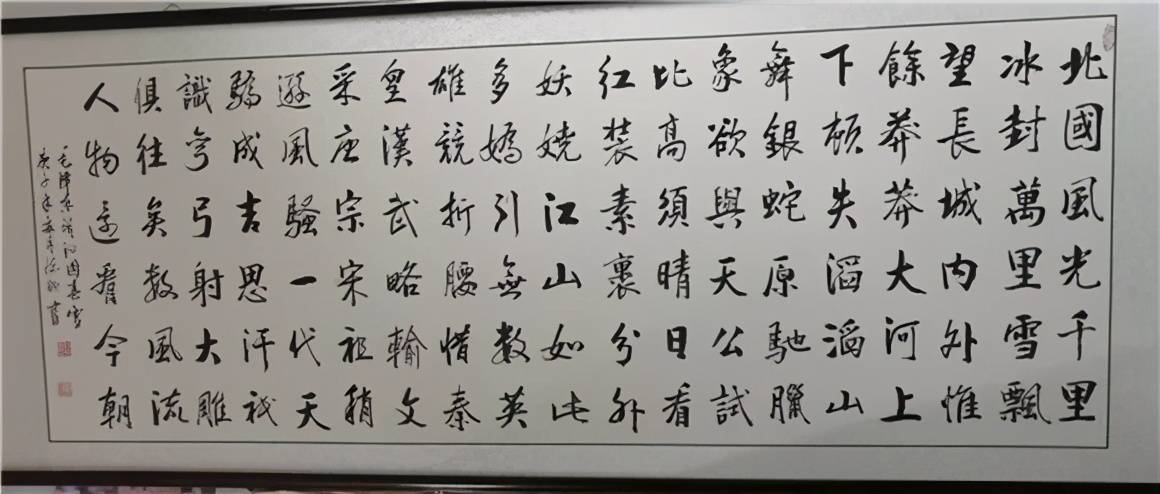 北國風光千里
冰封萬里雪飄
望長城内外惟
餘莽莽大河上
下頓失滔滔山
舞銀蛇原馳臘
象欲與天公試
比高須晴日看
红装素裹分外
妖嬈江山如此
多嬌引無数英
雄競折腰惜秦
皇漢武略輸文
采唐宗宋祖稍
遜風騷一代天
驕成吉思汗祇
識彎弓射大雕
俱往矣数風流
人物還看今朝
毛澤东詩沁園春雪
庚子年書